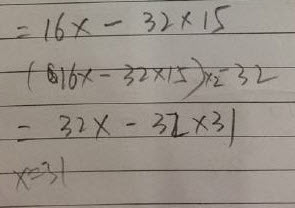 = 16x - 32×15
(16x - 32×15)×2-32
= 32x - 32×31
x=31